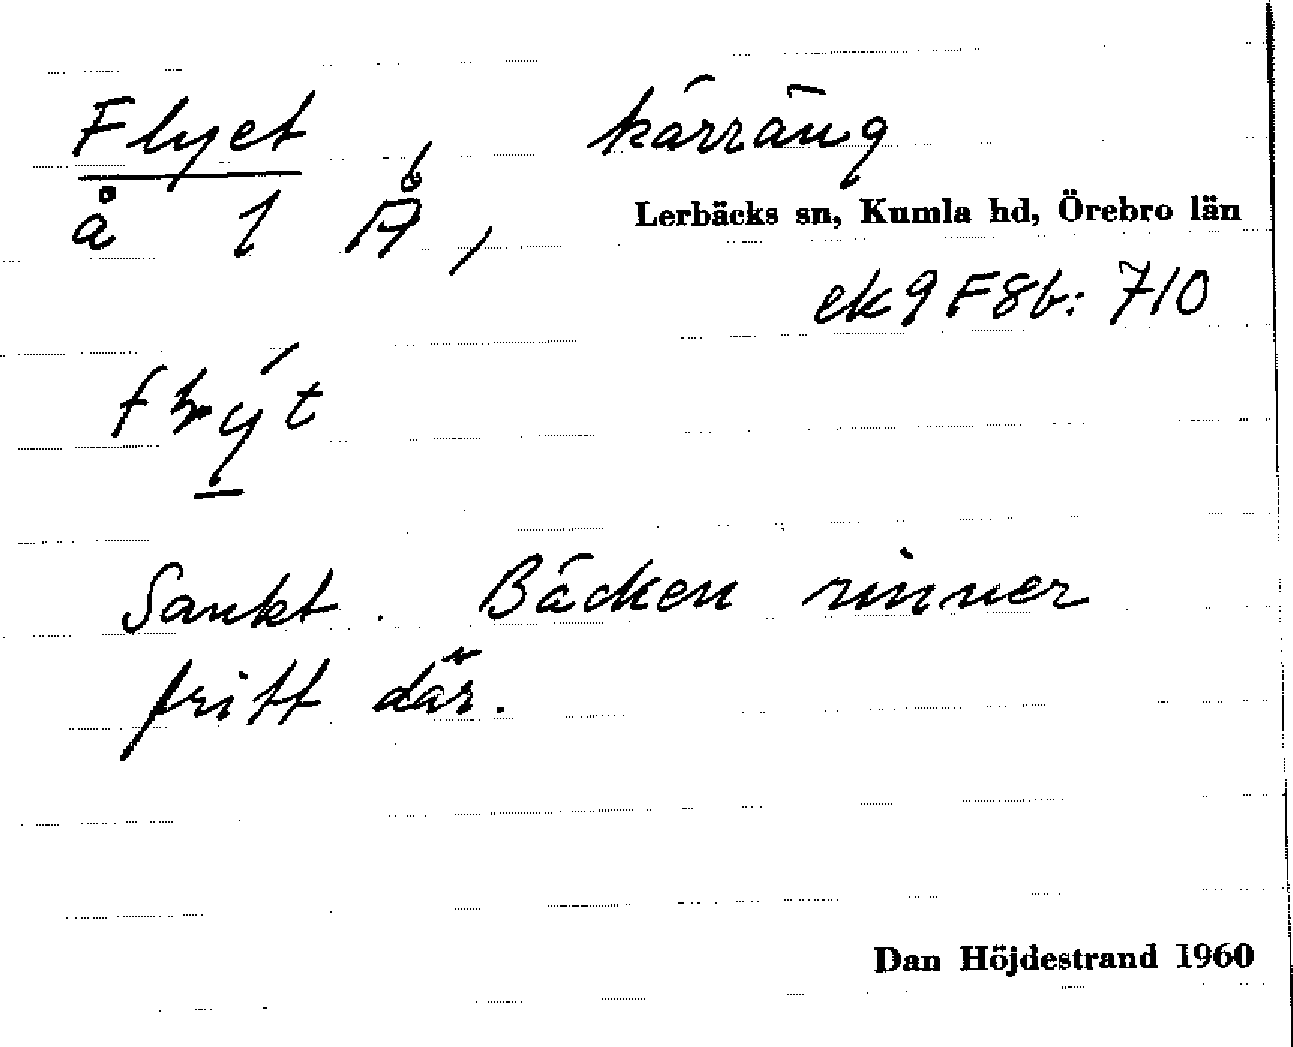 Flyet, kärräng
å 1 Å,
Lerbäcks sn, Kumla hd, Örebro län
ek 9F8b: 710
Sankt. Bäcken rinner
fritt där.
Dan Höjdestrand 1960